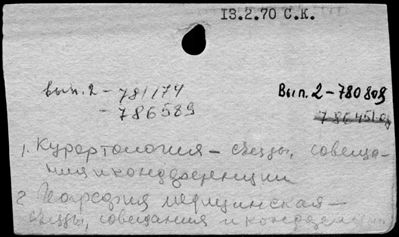 13.2.70 С.К.
вып. 2 – 781174
– 786589
Вып. 2 – 780809
1. Курортология – съезды, совеща-
ния и конференции
2. География медицинская –
съезды, совещания и конференции